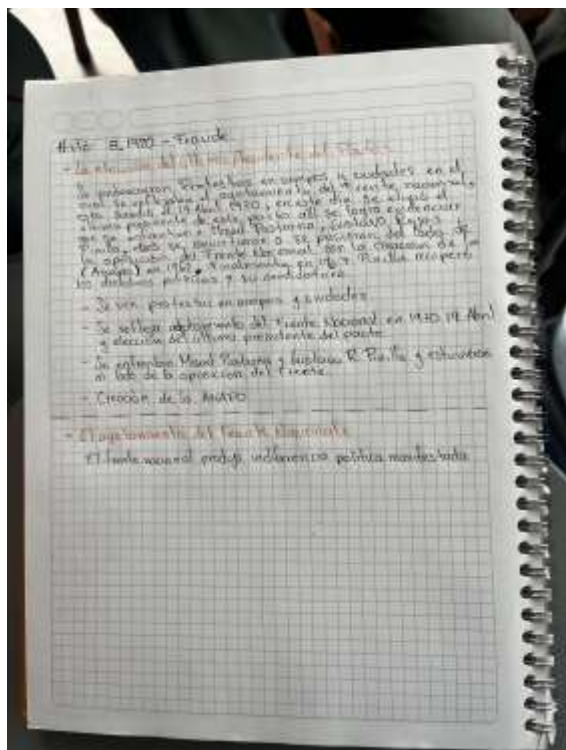 1970 - Fraude
- La elección del último Presidente del Pacto
Se presenciaron Protestas en campos y ciudades en el
cual se reflejaba el agotamiento del Frente nacional,
el 19 Abril 1970, en este día se eligió el
último presidente de este pacto, allí se logró evidenciar
que se enfrentaron Misael Pastrana, Gustavo Rojas
Pinilla, se posicionan del lado de
la oposición del Frente Nacional con la creación de la
(Anapo) en 1961. Finalmente, en Pinilla recuperó
los derechos políticos y su candidatura
- Se ven protestas en campos y ciudades
- Se refleja agotamiento del Frente Nacional en 1970 19 Abril
y elección del último presidente del pacto.
- Se enfrentan Misael Pastrana y Gustavo R. Pinilla y estuvieron
al lado de la oposición del Frente.
- Creación de la ANAPO
- El agotamiento del Frente Nacional
El frente nacional produjo indiferencia política manifestada